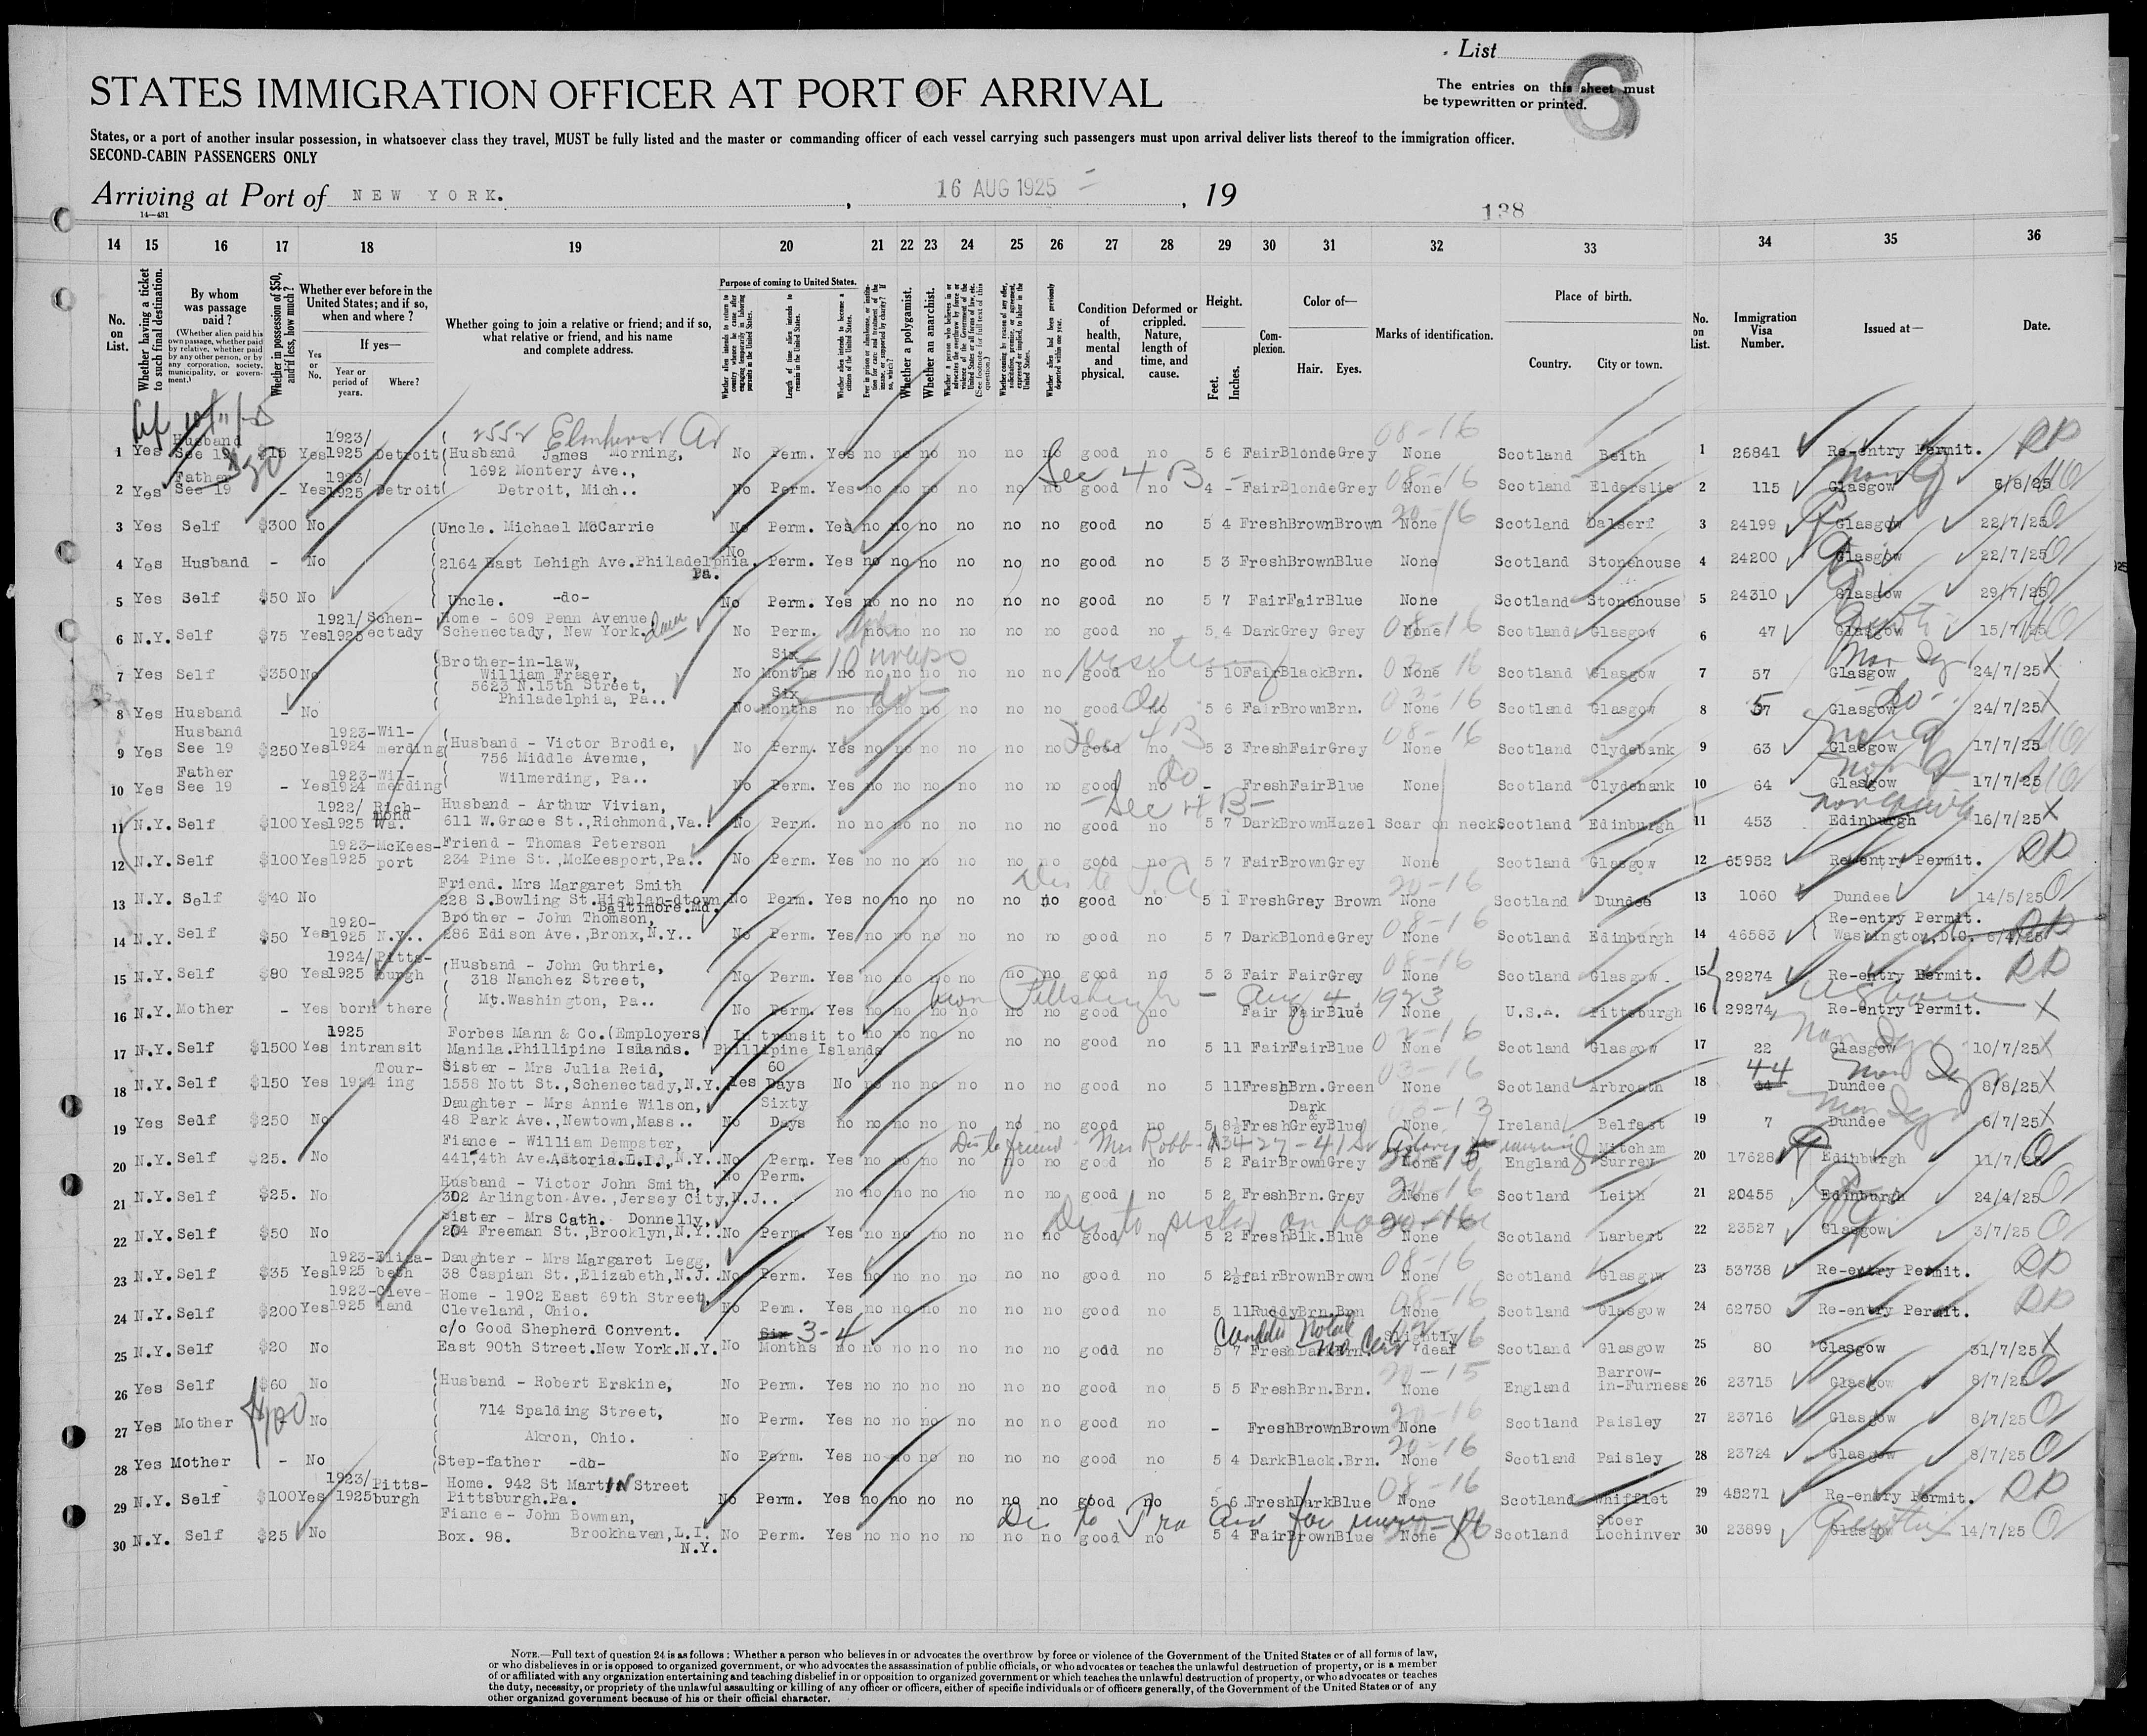 List
6
The entries on this sheet must
be typewritten or printed.
STATES IMMIGRATION OFFICER AT PORT OF ARRIVAL
States, or a port of another insular possession, in whatsoever class they travel, MUST be fully listed and the master or commanding officer of each vessel carrying such passengers must upon arrival deliver lists thereof to the immigration officer.
SECOND-CABIN PASSENGERS ONLY
Arriving at Port of NEW YORK. , 16 AUG 1925 , 19
14—431
138
14 15 16 17 18 19 20 21 22 23 24 25 26 27 28 29 30 31 32 33 34 35 36
No. on List.
Whether having a ticket to such final destination.
By whom was passage paid?
(Whether alien paid his own passage, whether paid by relative, whether paid by any other person, or by any corporation, society, municipality, or government.)
Whether in possession of $50, and if less, how much?
Whether ever before in the United States; and if so, when and where?
Yes or No.
If yes—
Year or period of years.
Where?
Whether going to join a relative or friend; and if so, what relative or friend, and his name and complete address.
Purpose of coming to United States.
Length of time alien intends to remain in the United States.
Whether alien intends to become a citizen of the United States.
Whether a polygamist.
Whether an anarchist.
Condition of health, mental and physical.
Deformed or crippled. Nature, length of time, and cause.
Height.
Feet. Inches.
Complexion.
Color of—
Hair. Eyes.
Marks of identification.
Place of birth.
Country. City or town.
No. on List.
Immigration Visa Number.
Issued at—
Date.
2552 Elmhurst Av
1 Yes Husband See 19 $15 Yes 1923/1925 Detroit Husband James Morning, No Perm. Yes no no no no no no good no 5 6 Fair Blonde Grey None Scotland Beith 1 26841 Re-entry Permit.
1692 Montery Ave.,
2 Yes Father See 19 - Yes 1923/1925 Detroit Detroit, Mich.. No Perm. Yes no no no no no no good no 4 - Fair Blonde Grey None Scotland Elderslie 2 115 Glasgow 6/8/25
Sec 4 B
3 Yes Self $300 No Uncle. Michael McCarrie No Perm. Yes no no no no no no good no 5 4 Fresh Brown Brown None Scotland Dalserf 3 24199 Glasgow 22/7/25
4 Yes Husband - No 2164 East Lehigh Ave.Philadelphia. Pa. No Perm. Yes no no no no no no good no 5 3 Fresh Brown Blue None Scotland Stonehouse 4 24200 Glasgow 22/7/25
5 Yes Self $50 No Uncle. -do- No Perm. Yes no no no no no no good no 5 7 Fair Fair Blue None Scotland Stonehouse 5 24310 Glasgow 29/7/25
6 N.Y. Self $75 Yes 1921/1925 Schenectady Home - 609 Penn Avenue Schenectady, New York. No Perm. no no no no no no good no 5 4 Dark Grey Grey None Scotland Glasgow 6 47 Glasgow 15/7/25
7 Yes Self $350 No Brother-in-law, William Fraser, 5623 N.15th Street, Philadelphia, Pa.. No Six Months no no no no no no no good no 5 10 Fair Black Brn. None Scotland Glasgow 7 57 Glasgow 24/7/25
visiting
8 Yes Husband - No No Six Months no no no no no no no good No 5 6 Fair Brown Brn. None Scotland Glasgow 8 57 Glasgow 24/7/25
9 Yes Husband See 19 $250 Yes 1923-1924 Wilmerding Husband - Victor Brodie, 756 Middle Avenue, Wilmerding, Pa.. No Perm. Yes no no no no no no good no 5 3 Fresh Fair Grey None Scotland Clydebank 9 63 Glasgow 17/7/25
10 Yes Father See 19 - Yes 1923-1924 Wilmerding No Perm. Yes no no no no no no good no - Fresh Fair Blue None Scotland Clydebank 10 64 Glasgow 17/7/25
-Sec 4 B-
11 N.Y. Self $100 Yes 1922/1925 Richmond Va. Husband - Arthur Vivian, 611 W.Grace St.,Richmond,Va.. No Perm. no no no no no no no good no 5 7 Dark Brown Hazel Scar on neck Scotland Edinburgh 11 453 Edinburgh 16/7/25
12 N.Y. Self $100 Yes 1923-1925 McKeesport Friend - Thomas Peterson 234 Pine St.,McKeesport,Pa.. No Perm. Yes no no no no no no good no 5 7 Fair Brown Grey None Scotland Glasgow 12 65952 Re-entry Permit.
13 N.Y. Self $40 No Friend. Mrs Margaret Smith 228 S.Bowling St.Highlan-dtown Baltimore.Md. No Perm. Yes no no no no no no good no 5 1 Fresh Grey Brown None Scotland Dundee 13 1060 Dundee 14/5/25
14 N.Y. Self $50 Yes 1920-1925 N.Y.. Brother - John Thomson, 286 Edison Ave.,Bronx,N.Y.. No Perm. Yes no no no no no no good no 5 7 Dark Blonde Grey None Scotland Edinburgh 14 46583 Re-entry Permit. Washington,D.C. 6/4/25
15 N.Y. Self $80 Yes 1924/1925 Pittsburgh Husband - John Guthrie, 318 Nanchez Street, Mt.Washington, Pa.. No Perm. Yes no no no no no no good no 5 3 Fair Fair Grey None Scotland Glasgow. 15 29274 Re-entry Permit.
born Pittsburgh - Aug 4 1923
16 N.Y. Mother - Yes born there No Perm. Yes no no no no no no good no Fair Fair Blue None U.S.A. Pittsburgh 16 29274 Re-entry Permit.
17 N.Y. Self $1500 Yes 1925 intransit Forbes Mann & Co.(Employers) Manila.Phillipine Islands. In transit to Phillipine Islands no no no no no no good no 5 11 Fair Fair Blue None Scotland Glasgow 17 22 Glasgow 10/7/25
18 N.Y. Self $150 Yes 1924 Touring Sister - Mrs Julia Reid, 1558 Nott St.,Schenectady,N.Y. Yes 60 Days No no no no no no no good no 5 11 Fresh Brn. Green None Scotland Arbroath 18 44 Dundee 8/8/25
19 Yes Self $250 No Daughter - Mrs Annie Wilson, 48 Park Ave.,Newtown,Mass.. No Sixty Days no no no no no no no good no 5 8½ Fresh Dark & Grey Blue None Ireland Belfast 19 7 Dundee 6/7/25
20 N.Y. Self $25. No Fiance - William Dempster, 441,4th Ave.Astoria.L.I.,N.Y.. No Perm. Yes no no no no no no good no 5 2 Fair Brown Grey None England Mitcham Surrey 20 17628 Edinburgh 11/7/25
21 N.Y. Self $25. No Husband - Victor John Smith, 302 Arlington Ave.,Jersey City,N.J.. No Perm. no no no no no no no good no 5 2 Fresh Brn. Grey None Scotland Leith 21 20455 Edinburgh 24/4/25
22 N.Y. Self $50 No Sister - Mrs Cath. Donnelly, 204 Freeman St.,Brooklyn,N.Y.. No Perm. Yes no no no no no no good no 5 2 Fresh Blk. Blue None Scotland Larbert 22 23527 Glasgow 3/7/25
23 N.Y. Self $35 Yes 1923-1925 Elizabeth Daughter - Mrs Margaret Legg, 38 Caspian St.,Elizabeth,N.J.. No Perm. Yes no no no no no no good no 5 2½ fair Brown Brown None Scotland Glasgow 23 53738 Re-entry Permit.
24 N.Y. Self $200 Yes 1923-1925 Cleveland Home - 1902 East 69th Street, Cleveland, Ohio. No Perm. Yes no no no no no no good no 5 11 Ruddy Brn. Brn None Scotland Glasgow 24 62750 Re-entry Permit.
25 N.Y. Self $20 No c/o Good Shepherd Convent. East 90th Street.New York.N.Y. No Six 3-4 Months no no no no no no no good no 5 7 Fresh Dark Brn. Slightly deaf Scotland Glasgow 25 80 Glasgow 31/7/25
26 Yes Self $60 No Husband - Robert Erskine, No Perm. Yes no no no no no no good no 5 5 Fresh Brn. Brn. None England Barrow-in-Furness 26 23715 Glasgow 8/7/25
27 Yes Mother - No 714 Spalding Street, Akron, Ohio. No Perm. Yes no no no no no no good no - Fresh Brown Brown None Scotland Paisley 27 23716 Glasgow 8/7/25
28 Yes Mother - No Step-father -do- No Perm. Yes no no no no no no good no 5 4 Dark Black. Brn. None Scotland Paisley 28 23724 Glasgow 8/7/25
29 N.Y. Self $100 Yes 1923/1925 Pittsburgh Home. 942 St Martin Street Pittsburgh.Pa. No Perm. Yes no no no no no no good no 5 6 Fresh Dark Blue None Scotland Whifflet 29 48271 Re-entry Permit.
30 N.Y. Self $25 No Fiance - John Bowman, Box. 98. Brookhaven,L.I. N.Y. No Perm. Yes no no no no no no good no 5 4 Fair Brown Blue None Scotland Stoer Lochinver 30 23899 Glasgow 14/7/25
NOTE.—Full text of question 24 is as follows: Whether a person who believes in or advocates the overthrow by force or violence of the Government of the United States or of all forms of law,
or who disbelieves in or is opposed to organized government, or who advocates the assassination of public officials, or who advocates or teaches the unlawful destruction of property, or is a member
of or affiliated with any organization entertaining and teaching disbelief in or opposition to organized government or which teaches the unlawful destruction of property, or who advocates or teaches
the duty, necessity, or propriety of the unlawful assaulting or killing of any officer or officers, either of specific individuals or of officers generally, of the Government of the United States or of any
other organized government because of his or their official character.